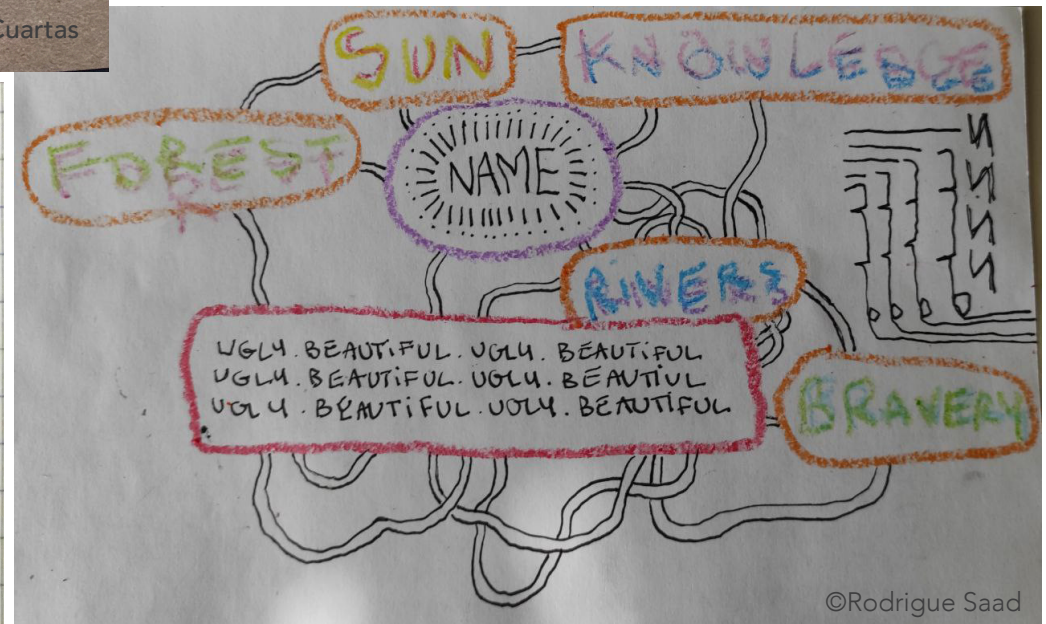 Cuartas
SUN
KNOWLEDGE
FOREST
NAME
RIVERS
UGLY. BEAUTIFUL. UGLY. BEAUTIFUL
UGLY. BEAUTIFUL. UGLY. BEAUTIUL
UGLY. BEAUTIFUL. UGLY. BEAUTIFUL
BRAVERY
©Rodrigue Saad